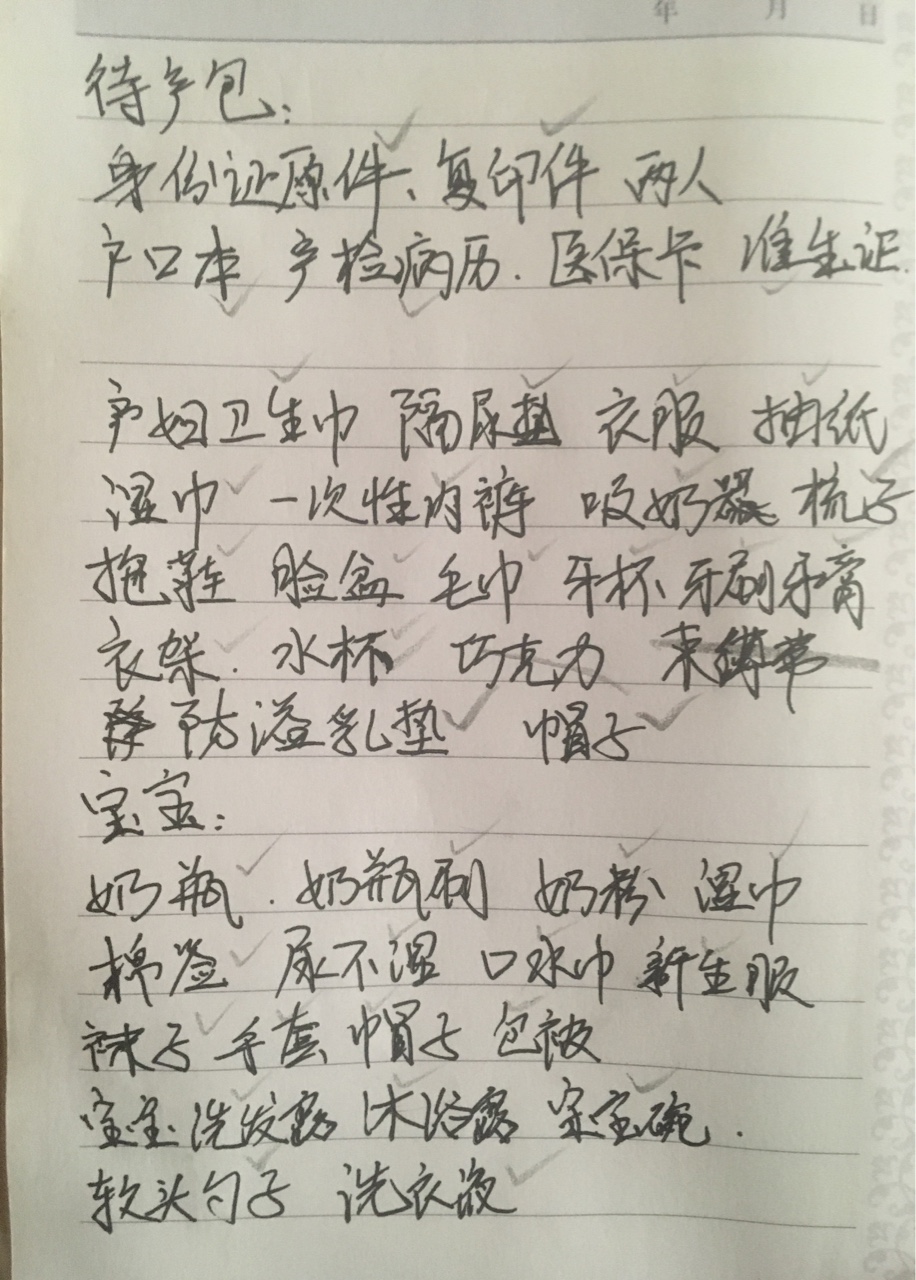 年 月 日
待产包：
身份证原件、复印件 两人
户口本 产检病历. 医保卡 准生证.
产妇卫生巾 隔尿垫 衣服 抽纸
湿巾 一次性内裤 吸奶器 梳子
拖鞋 脸盆 毛巾 牙杯、牙刷牙膏
衣架. 水杯 巧克力 束缚带
防溢乳垫 帽子
宝宝：
奶瓶. 奶瓶刷 奶粉 湿巾
棉签 尿不湿 口水巾 新生服
袜子 手套 帽子 包被
宝宝洗发露 沐浴露 宝宝碗.
软头勺子 洗衣液